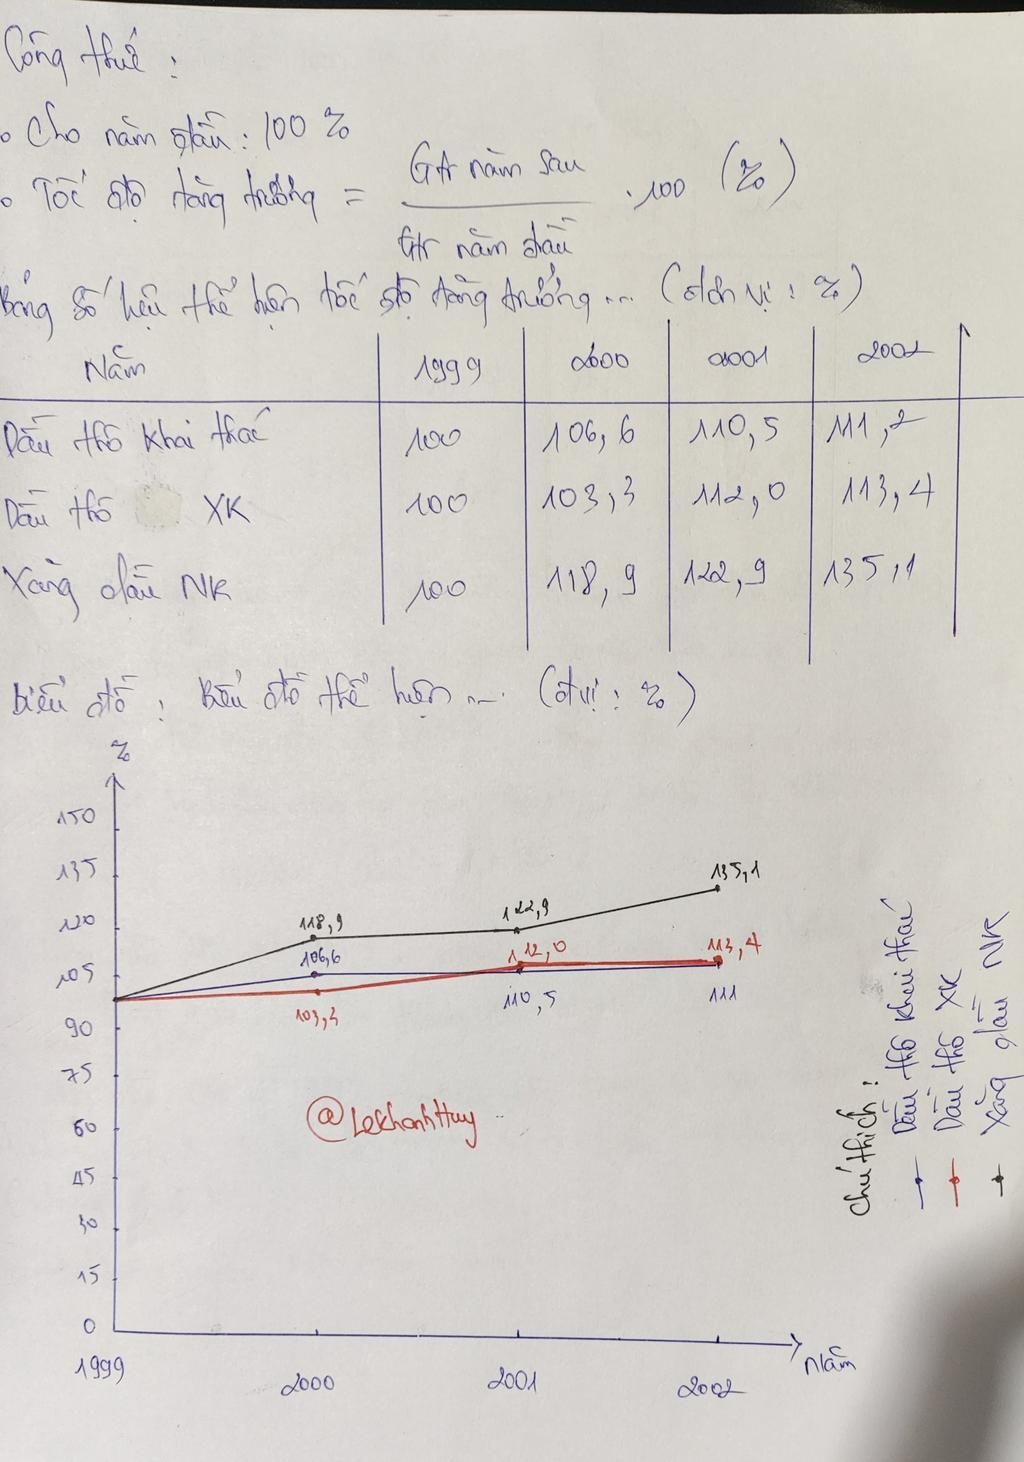 Công thức :
• Cho năm đầu : 100 %
• Tốc độ tăng trưởng = Gtr năm sau / Gtr năm đầu . 100 (%)
Bảng số liệu thể hiện tốc độ tăng trưởng ... (đơn vị : %)
Năm 1999 2000 2001 2002
Dầu thô khai thác 100 106,6 110,5 111,2
Dầu thô XK 100 103,3 112,0 113,4
Xăng dầu NK 100 118,9 122,9 135,1
Biểu đồ : Biểu đồ thể hiện ... (đ.vị : %)
%
150
135
120
105
90
75
60
45
30
15
0
118,9 122,9 135,1
106,6 112,0 113,4
103,3 110,5 111
@LeKhanhHuy
1999 2000 2001 2002 Năm
Chú thích :
Dầu thô khai thác
Dầu thô XK
Xăng dầu NK